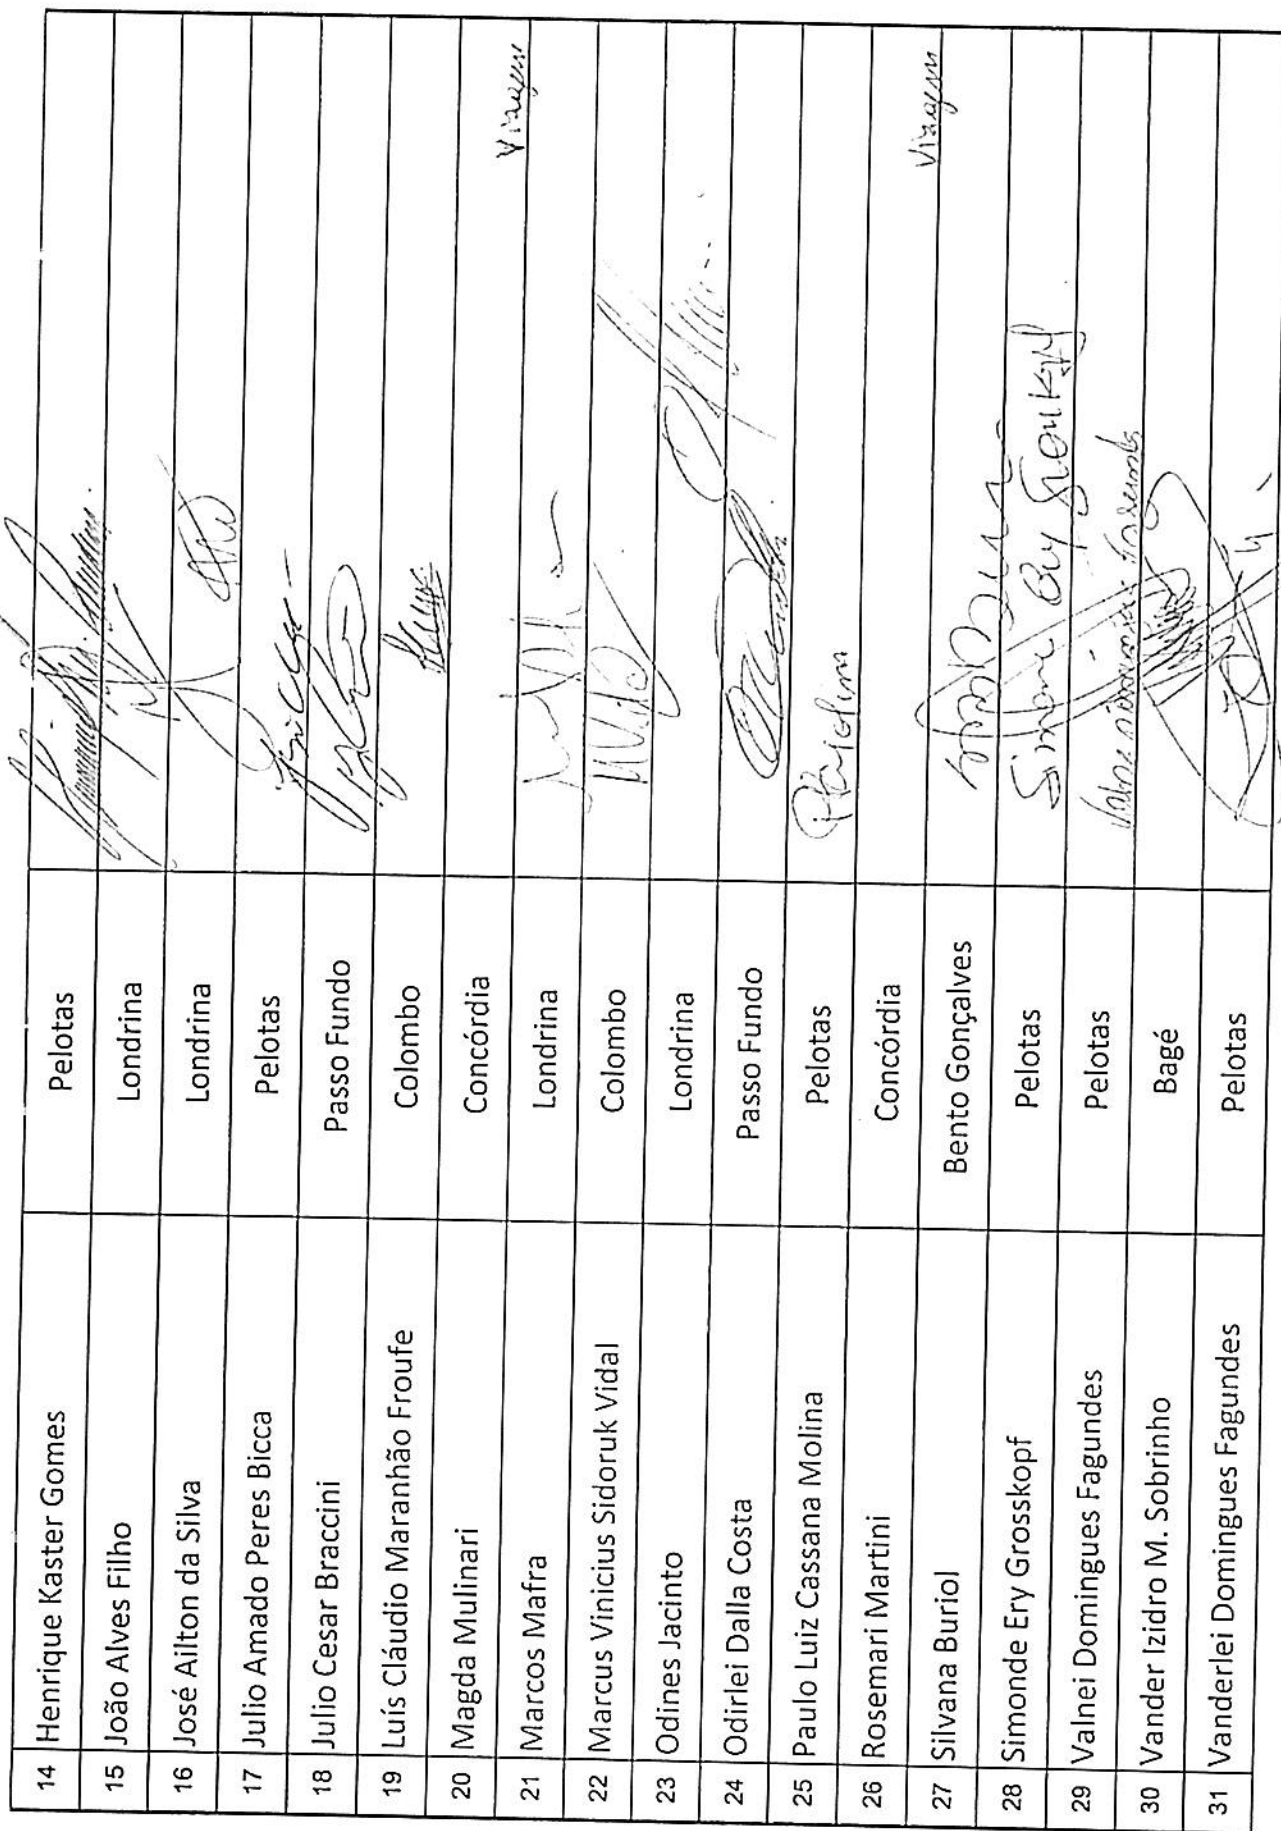 14 Henrique Kaster Gomes Pelotas
15 João Alves Filho Londrina
16 José Ailton da Silva Londrina
17 Julio Amado Peres Bicca Pelotas
18 Julio Cesar Braccini Passo Fundo
19 Luís Cláudio Maranhão Froufe Colombo
20 Magda Mulinari Concórdia Viagem
21 Marcos Mafra Londrina
22 Marcus Vinicius Sidoruk Vidal Colombo
23 Odines Jacinto Londrina
24 Odirlei Dalla Costa Passo Fundo
25 Paulo Luiz Cassana Molina Pelotas
26 Rosemari Martini Concórdia Viagem
27 Silvana Buriol Bento Gonçalves
28 Simonde Ery Grosskopf Pelotas
29 Valnei Domingues Fagundes Pelotas
30 Vander Izidro M. Sobrinho Bagé
31 Vanderlei Domingues Fagundes Pelotas